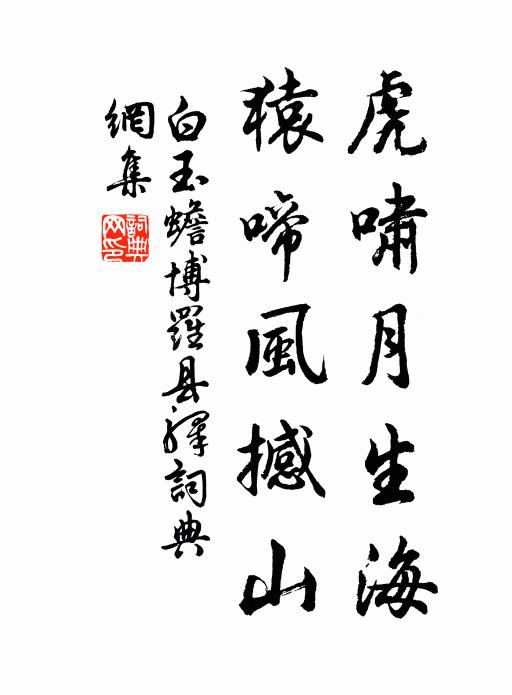 虎嘯月生海
猿啼風撼山
白玉蟾博羅县驛詞典
網集
詞典
網印